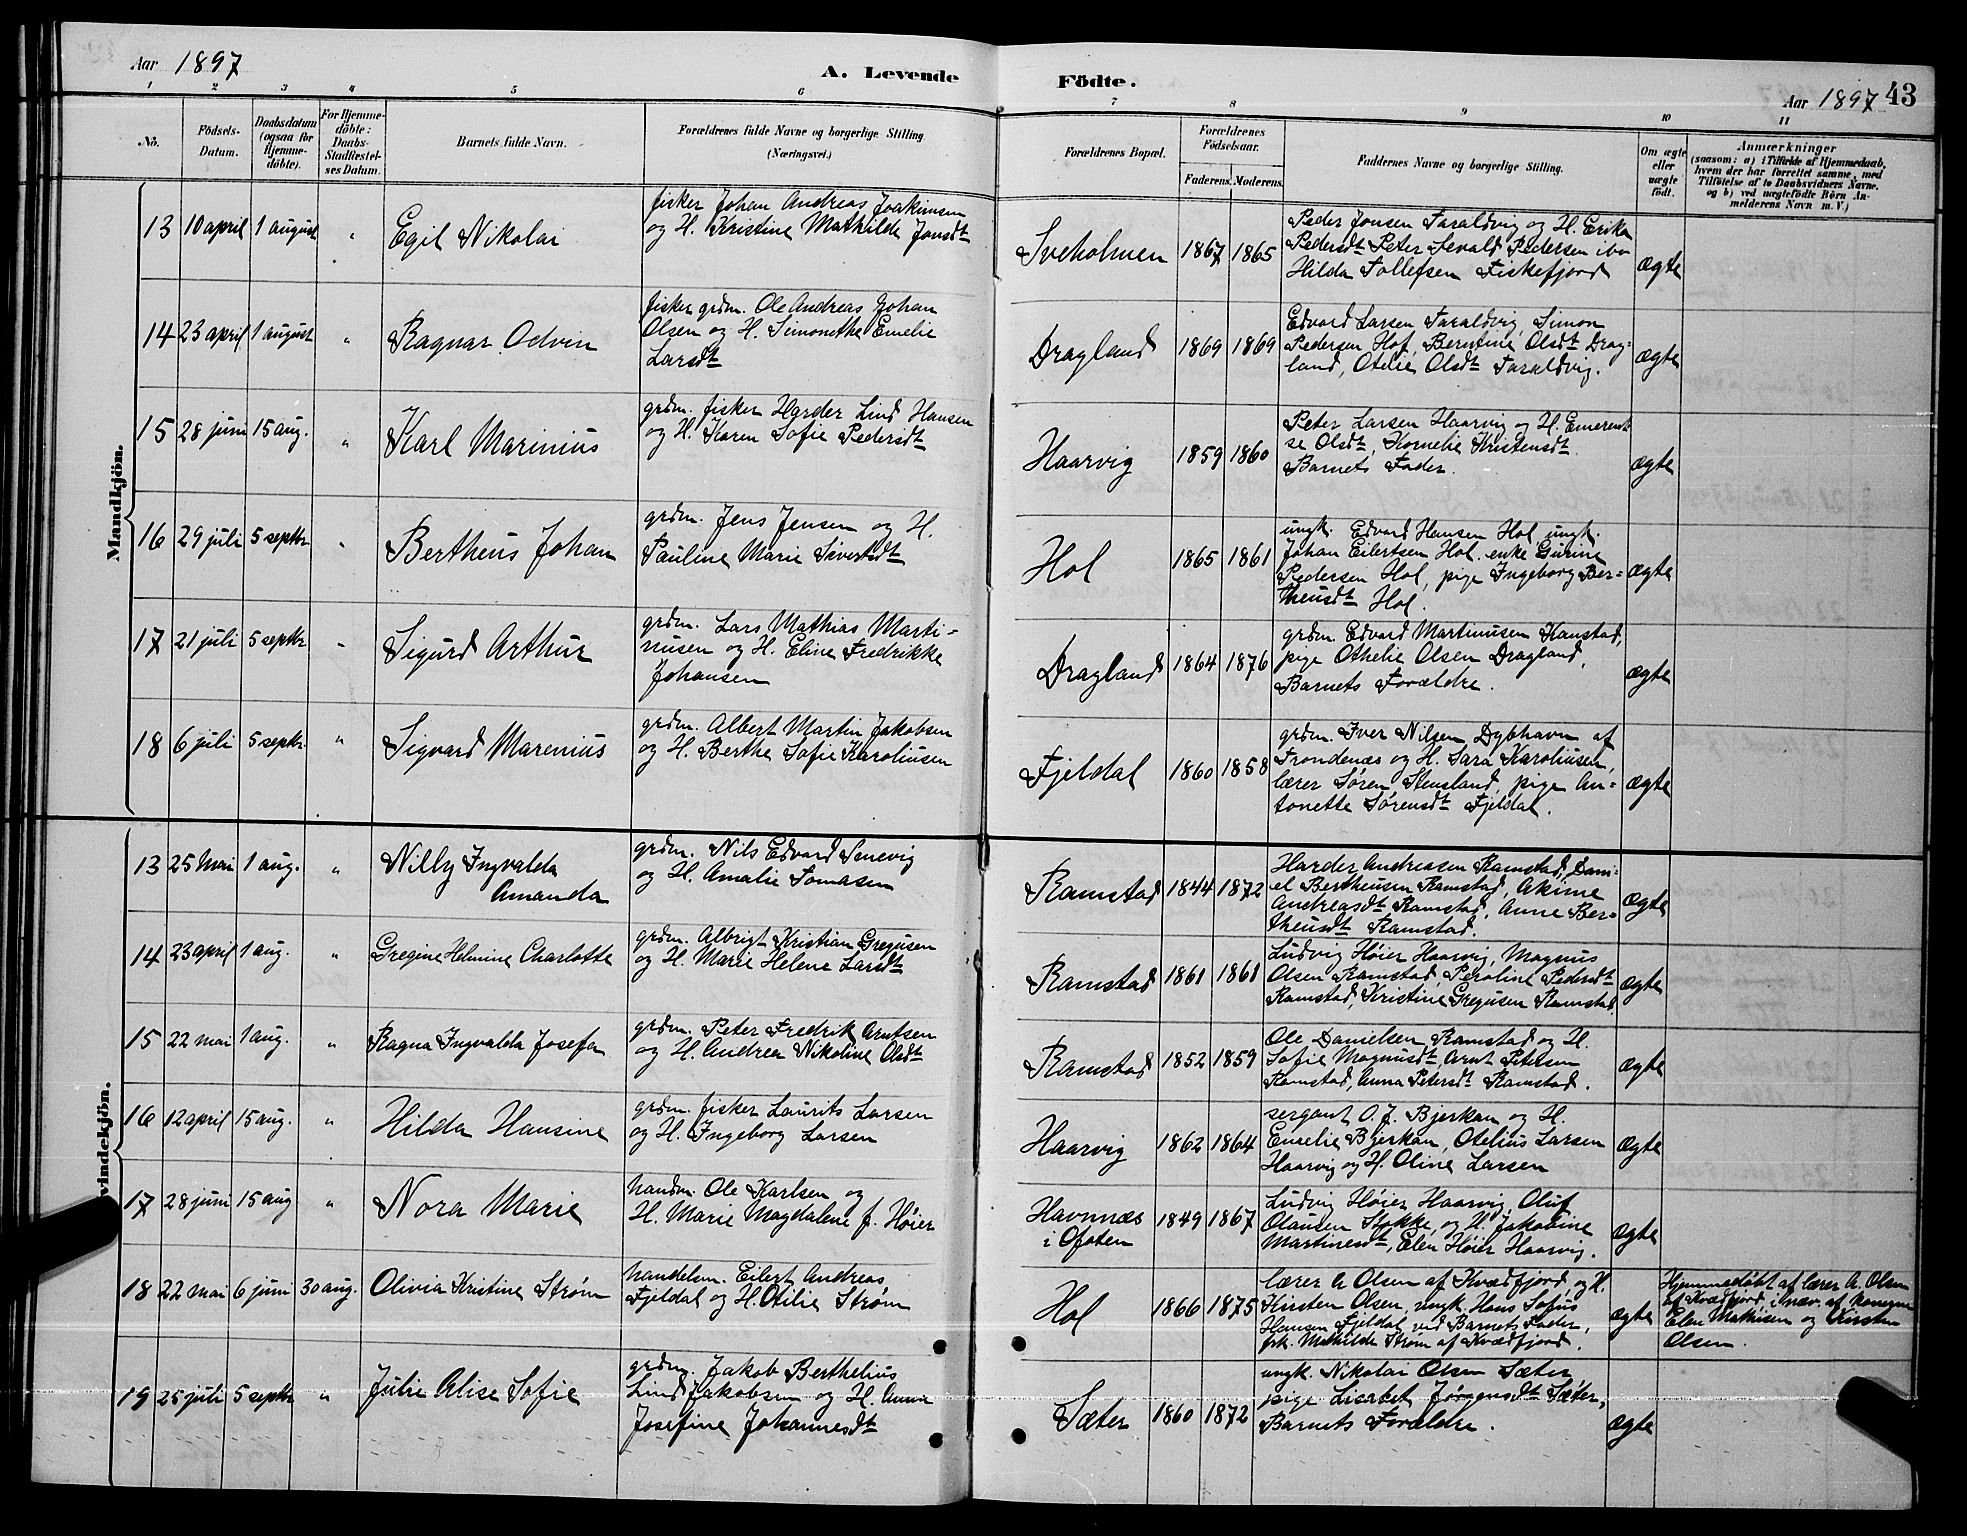 Aar 1897
A. Levende
Födte.
Aar 1897 43
1 2 3 4 5 6 7 8 9 10 11
No.
Födsels-
Datum.
Daabsdatum
(ogsaa for
Hjemme-
döbte).
For Hjemme-
döbte:
Daabs-
Stadfæstel-
ses Datum.
Barnets fulde Navn.
Forældrenes fulde Navne og borgerlige Stilling
(Næringsvei.)
Forældrenes Bopæl.
Forældrenes
Födselsaar.
Faderens. Moderens.
Faddernes Navne og borgerlige Stilling.
Om ægte
eller
uægte
født.
Anmærkninger
(saasom: a) i Tilfælde af Hjemmedaab,
hvem der har forrettet samme, med
Tilföielse af to Daabsvidners Navne.
og b) ved uægtefödte Börn An-
melderens Navn m. V.)
Mandkjön.
13 10 april 1 august "
Egil Nikolai
fisker Johan Andreas Joakimsen
og H. Kristine Mathilde Jonsdt
Sveholmen 1867 1865
Peder Jonsen Taraldvig og H. Erika
Pedersdt Peter Sevald Pedersen ibn
Hilda Tollefsen Fiskefjord
ægte
14 23 april 1 august "
Ragnar Odvin
fisker grdm. Ole Andreas Johan
Olsen og H. Simonethe Emelie
Larsdt
Dragland 1869 1869
Edvard Larsen Taraldvig, Simon
Pedersen Hof, Berntine Olsdt Drag=
land, Otelie Olsdt Taraldvig.
ægte
15 28 juni 15 aug. "
Karl Marinius
grdm. fisker Harder Lind Hansen
og H. Karen Sofie Pedersdt
Haarvig 1859 1860
Peter Larsen Haarvig og H. Emerent
se Olsdt, Kornelie Kristensdt
Barnets Fader.
ægte
16 29 juli 5 septbr "
Bertheus Johan
grdm. Jens Jensen og H.
Pauline Marie Sivertsdt
Hol 1865 1861
ungk. Edvard Hansen Hol, ungk.
Johan Eilertsen Hol. enke Gurine
Pedersen Hol, pige Ingeborg Ber=
theusdt Hol.
ægte
17 21 juli 5 septbr "
Sigurd Arthur
grdm. Lars Mathias Marti=
nusen og H. Eline Fredrikke
Johansen
Dragland 1864 1876
grdm. Edvard Martinusen Kanstad,
pige Othelie Olsen Dragland,
Barnets Forældre.
ægte
18 6 juli 5 septbr. "
Sigvard Marenius
grdm. Albert Martin Jakobsen
og H. Berthe Sofie Karoliusen
Fjeldal 1860 1858
grdm. Iver Nilsen Dybhavn af
Trondenæs og H. Sara Karoliusen,
lærer Søren Stensland, pige An=
tonette Sørensdt Fjeldal.
ægte
vindekjön.
13 25 Mai 1 aug. "
Nilly Ingvalda
Amanda
grdm. Nils Edvard Snevig
og H. Amalie Tomasen
Ramstad 1844 1872
Harder Andreassen Ramstad, Dani=
el Bertheusen Ramstad, Akime
Andreasdt Ramstad, Anne Ber=
theusdt Ramstad.
ægte
14 23 april 1 aug. "
Gregine Helmine Charlotte
grdm. Albrigt Kristian Gregusen
og H. Marie Helene Larsdt
Ramstad 1861 1861
Ludvig Høier Haarvig, Magnus
Olsen Ramstad, Peroline Pedersdt
Ramstad, Kristine Gregusen Ramstad
ægte
15 22 mai 1 aug. "
Ragna Ingvalda Josefa
grdm. Peter Fredrik Arntsen
og H. Andrea Nikoline Olsdt
Ramstad 1852 1859
Ole Danielsen Ramstad og H.
Sofie Magnusdt, Arnt Petersen
Ramstad, Anna Petersdt Ramstad.
ægte
16 12 april 15 aug. "
Hilda Hansine
grdm. fisker Laurits Larsen
og H. Ingeborg Larsen
Haarvig 1862 1864
sergant O. J. Bjerkan og H.
Emelie Bjerkan, Otelius Larsen
Haarvig og H. Oline Larsen
ægte
17 28 juni 15 aug "
Nora Marie
handm. Ole Karlsen og
H. Marie Magdalene f. Høier
Havnnæs
i Ofoten
1849 1867
Ludvig Høier Haarvig, Oluf
Olausen Stokke, og H. Jakobine
Martinesdt, Elen Høier Haarvig.
ægte
18 22 mai 6 juni 30 aug.
Olivia Kristine Strøm
handelsm. Eilert Andreas
Fjeldal og H. Otilie Strøm
Hol 1866 1875
lærer A Olsen af Kvædfjord, og H.
Kirsten Olsen, ungk. Hans Sofus
Hansen Fjeldal, ved Barnets Fader,
frk. Mathilde Strøm af Kvædfjord.
ægte
Hjemmedøbt af lærer A. Olsen
af Kvædfjord, i nærv. af konerne
Elen Mathisen og Kirsten
Olsen.
19 25 juli 5 septbr "
Julie Alise Sofie
grdm. Jakob Berthelius
Lind Jakobsen og H. Anna
Josefine Johannesdt
Sæter 1860 1872
ungk. Nikolai Olsen Sæter
pige Lisabet Jørgensdt Sæter,
Barnets Forældre.
ægte